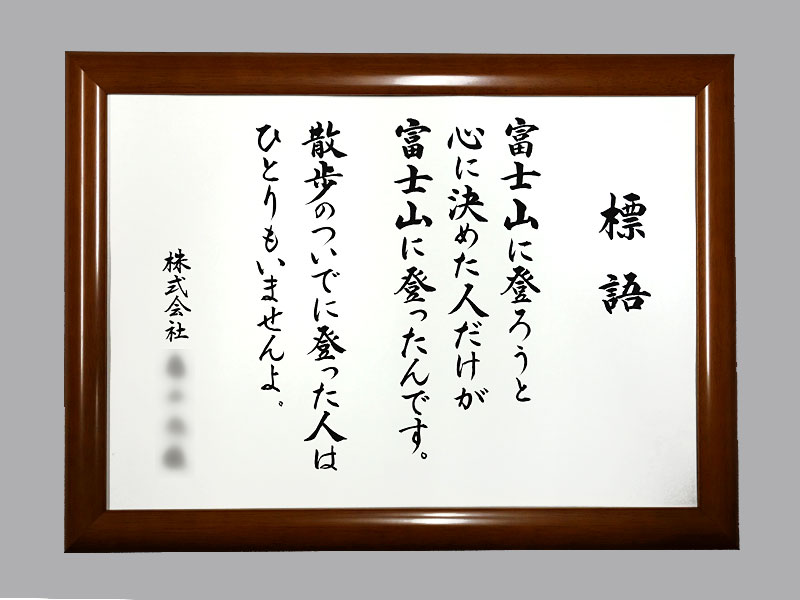 標語
富士山に登ろうと
心に決めた人だけが
富士山に登ったんです。
散歩のついでに登った人は
ひとりもいませんよ。
株式会社